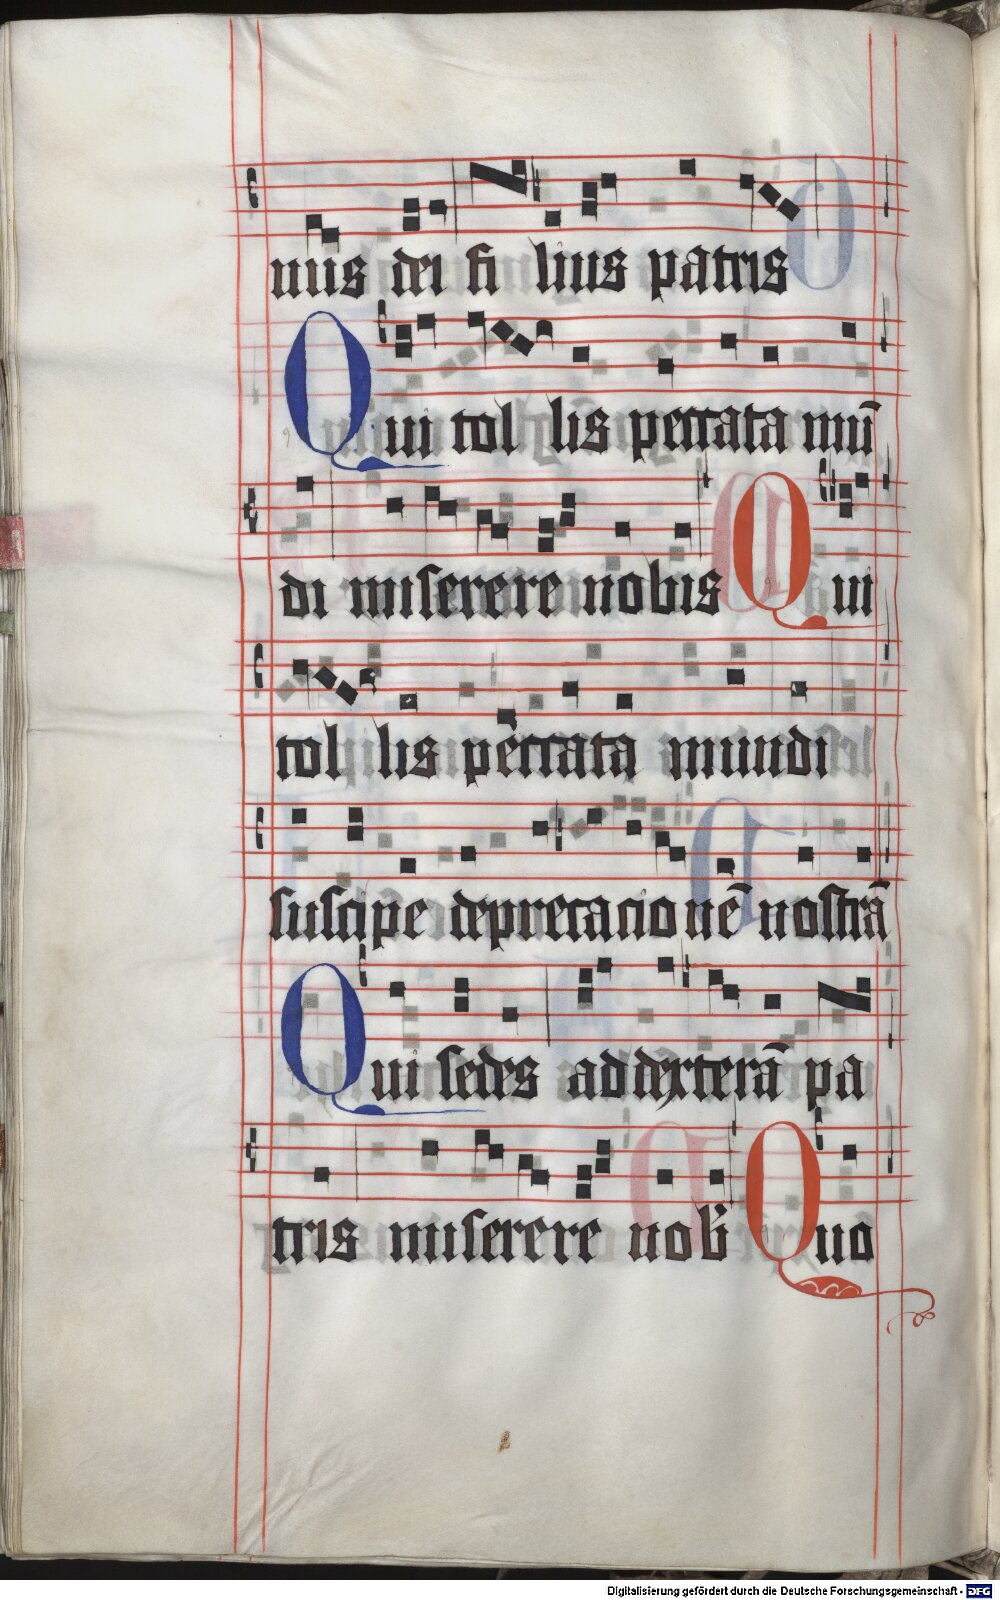 nus dei fi lius patris
Qui tol lis peccata mū
di miserere nobis Qui
tol lis peccata mundi
suscipe deprecacionē nostrā
Qui sedes ad dexterā pa
tris miserere nob' Quo
Digitalisierung gefördert durch die Deutsche Forschungsgemeinschaft - DFG